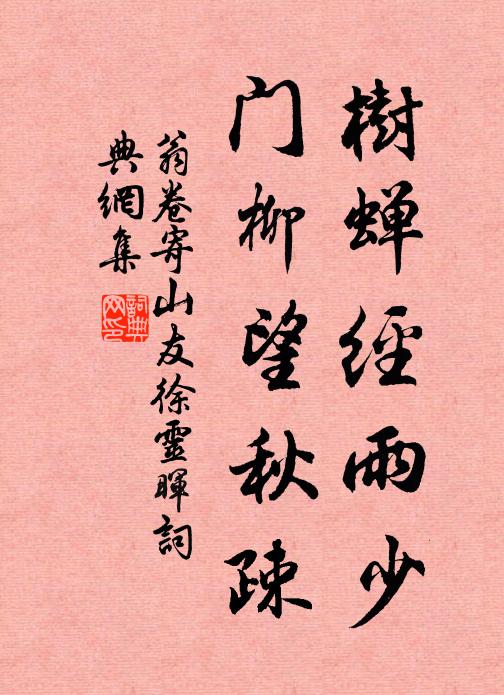 樹蝉經雨少
门柳望秋疎
翁卷寄山友徐靈暉詞
典網集
詞典
网印